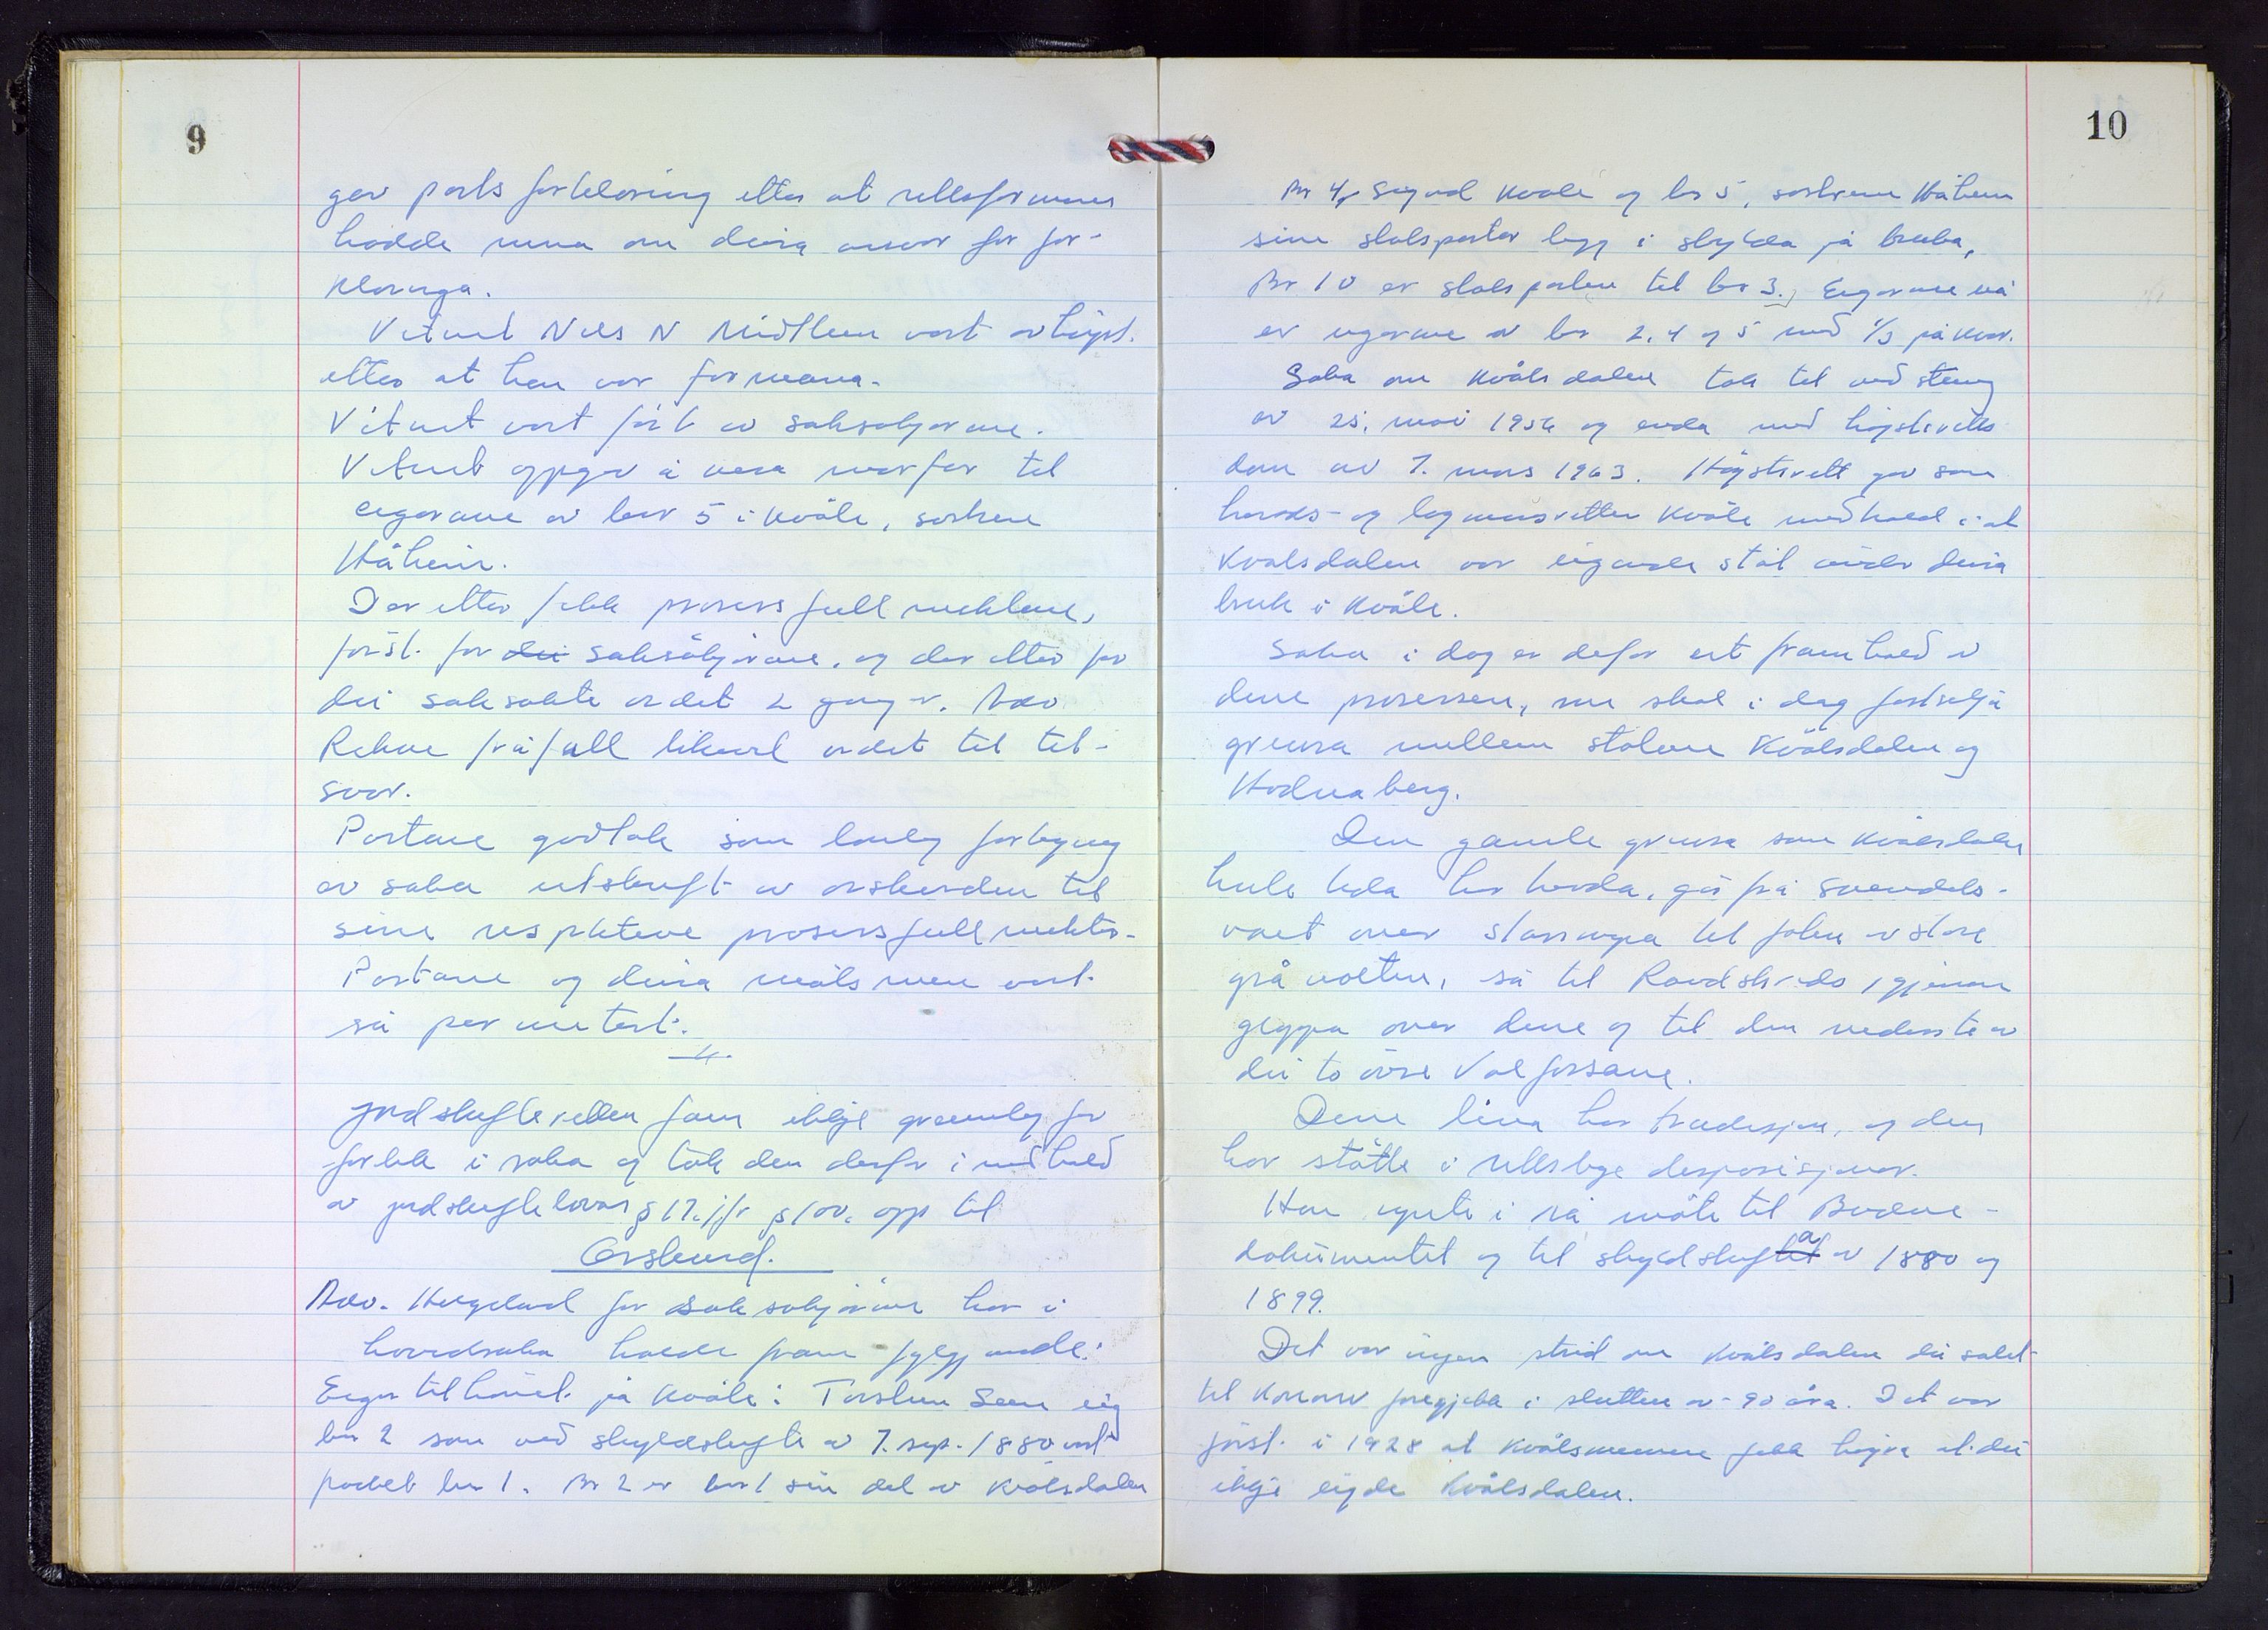 9
gav parts forklaring etter at rettsformannen
hadde mint om deira ansvar for for-
klaringa.
Vitnet Nils N Midttun vart avhøyrt
etter at han var formana.
Vitnet vart ført av saksøkjarane.
Vitnet oppgav å vera morfar til
eigarane av bnr 5 i Kvåle, søskene
Håheim.
Deretter fekk prosessfullmektane,
først for dei saksøkjarane, og deretter for
dei saksøkte ordet 2 gonger. Adv
Rekve fråfall likevel ordet til til-
svar.
Partane godtok som lovleg forkynning
av saka utskrift av orskurden til
sine respektive prosessfullmektig.
Partane og deira målsmenn vart
så permitert.
Jordskifteretten fann ikkje grunnlag for
forlik i saka og tok den derfor i medhald
av jordskiftelovas § 17, jfr § 100, opp til
Orskurd.
Adv. Helgeland for saksøkjarane har i
hovudsaka halde fram fylgjande:
Eigartilhøvet på Kvåle: Torstein Seim eig
bnr 2 som ved skyldskifte av 7. sep. 1880 vart
parket bnr 1. Bnr 2 er bnr 1 sin del av Kvålsdalen
10
Bnr 4, Sigurd Kvåle og bnr 5, søskrene Håheim
sine stølsparter ligg i skylda på bruka,
Bnr 10 er stølsparten til bnr 3. Eigarane nå
er eigarane av bnr 2, 4 og 5 med 1/3 på kvar.
Saka om Kvålsdalen tok til ved stevning
av 25. mai 1956 og enda med høgsteretts
dom av 7. mars 1963. Høgsterett gav som
herads- og lagmannsretten Kvåle medhald i at
Kvålsdalen var eigande støl under deira
bruk i Kvåle.
Saka i dag er defor eit framhald av
denne prosessen, me skal i dag fastsetja
grensa mellom stølane Kvålsdalen og
Hodnaberg.
Den gamle grensa som Kvålsdalen
heile tida har hevda, går frå Svendals-
vatnet over til foten av store
grånosten, så til Raudskreda, igjennom
gloppa over denne og til den nederste av
dei to øvre Valfossane.
Denne lina har tradisjon, og den
har støtte i rettslige disposisjonar.
Han synte i så måte til Budene-
dokumentet og til skyldskifta av 1880 og
1899.
Det var ingen strid om Kvålsdalen då salet
til foregjekk i slutten av - 90 åra. Det var
først i 1928 at Kvålsmennene fekk høyra at dei
ikkje eigde Kvålsdalen.